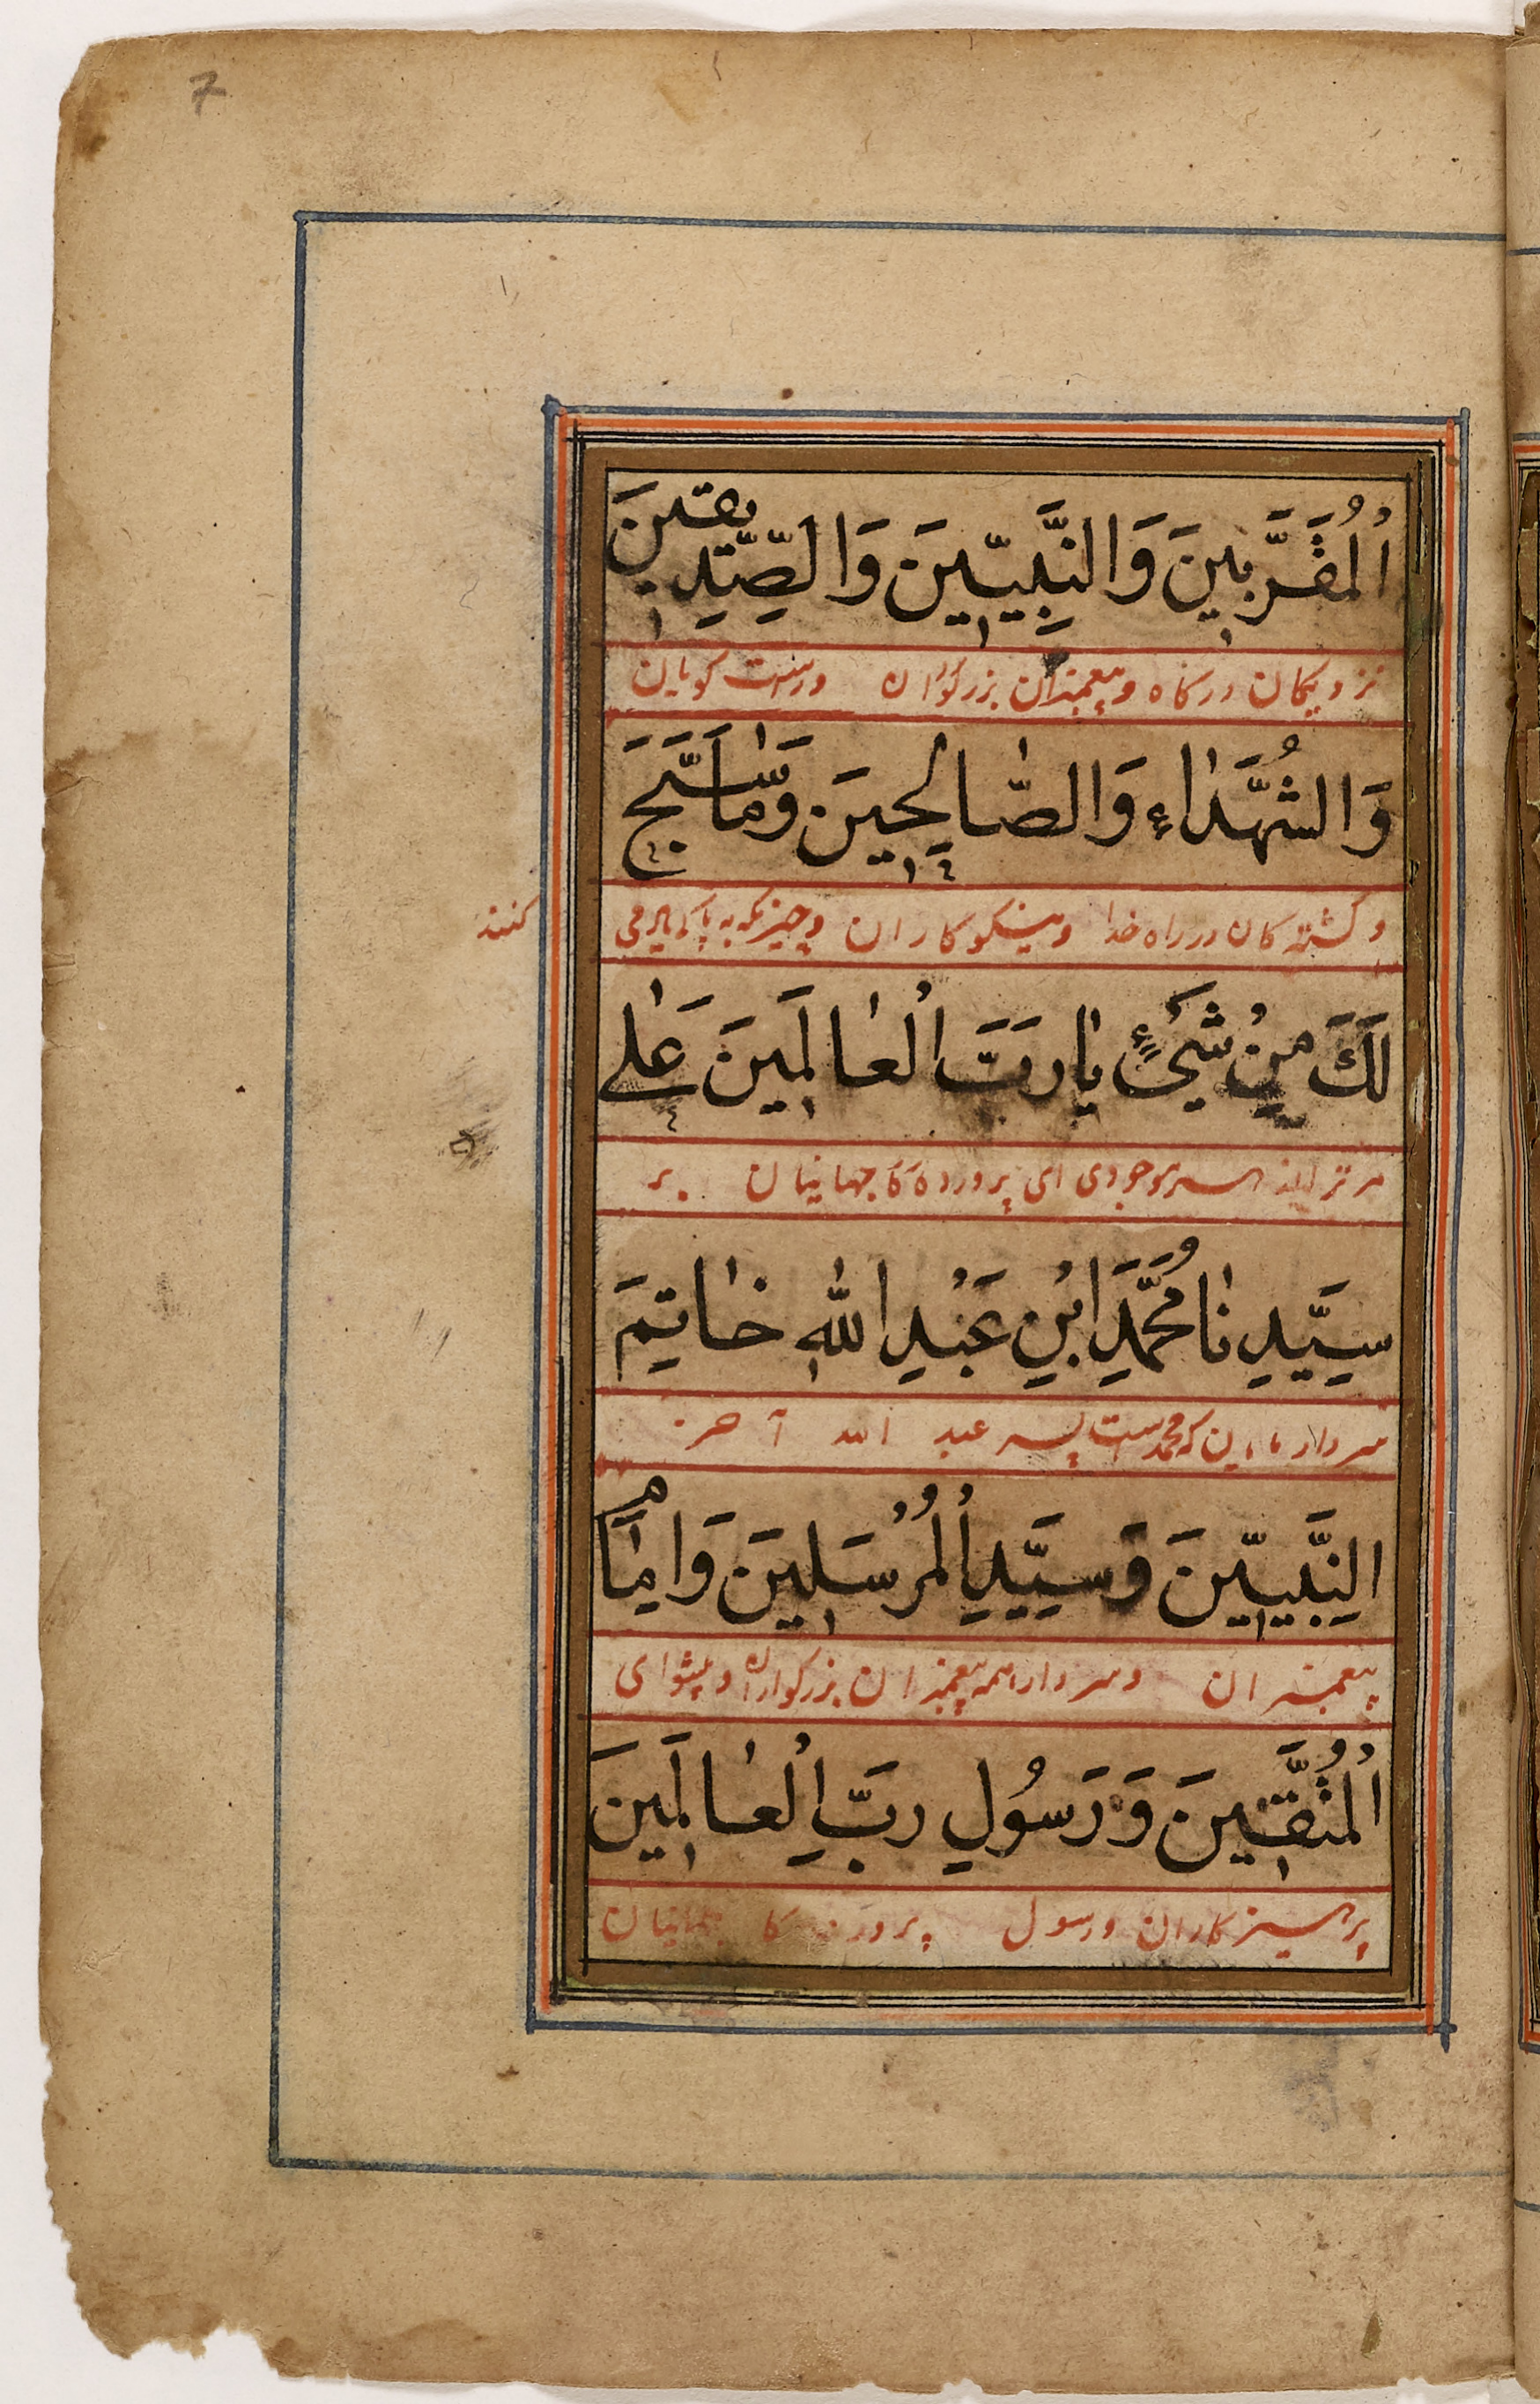 7
اَلْمُقَرَّبِينَ وَالنَّبِيّينَ وَالصِّدِّيقينَ
نزدیکان درکاه و پیغمبران بزرکواران و راست کویان
وَالشُّهَدَاءِ وَالصَّالِحينَ وَمَا سَبَّحَ
و کشته کان در راه خدا و نیکو کاران و چیزیکه به پاکی یاد می کنند
لَكَ مِنْ شَيْءٍ يَارَبَّ الْعَالَمينَ عَلى
مر ترا موجودی ای پروردکار جهانیان بر
سَيِّدِنَا مُحَمَّدِ ابْنِ عَبْدِ اللهِ خَاتِمَ
سردار ما این که محمدست پسر عبد الله آخر
النَّبِيّينَ وَسَيِّدِ الْمُرْسَلينَ وَاِمَامِ
پیغمبران و سردار همه پیغمبران بزرکواران و پیشوای
الْمُتَّقينَ وَرَسُولِ رَبِّ الْعَالَمينَ
پرهیزکاران و رسول پروردکار جهانیان